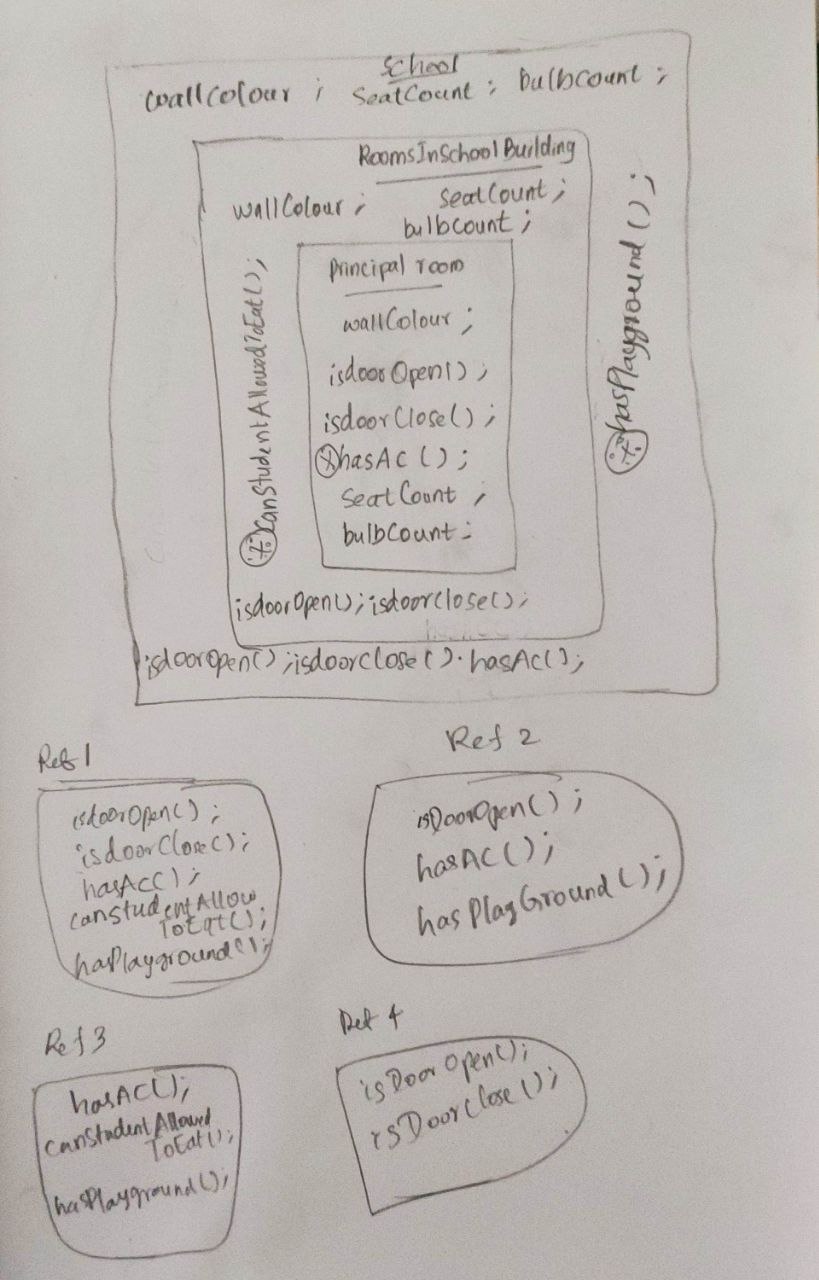 School
wallColour ; SeatCount ; bulbCount ;
RoomsInSchoolBuilding
wallColour ; seatCount ;
bulbCount ;
Principal room
wallColour ;
isdoorOpen() ;
isdoorClose() ;
hasAc () ;
SeatCount ;
bulbCount ;
canStudentAllowedToEat() ;
hasPlayground () ;
isdoorOpen() ; isdoorClose() ;
isdoorOpen() ; isdoorClose() . hasAc() ;
Ref 1
isdoorOpen() ;
isdoorClose() ;
hasAc() ;
canStudentAllow
ToEat() ;
hasPlayground() ;
Ref 2
isDoorOpen() ;
hasAC() ;
hasPlayGround() ;
Ref 3
hasAC() ;
canStudentAllowed
ToEat() ;
hasPlayground() ;
Ref 4
isDoorOpen() ;
isDoorClose() ;